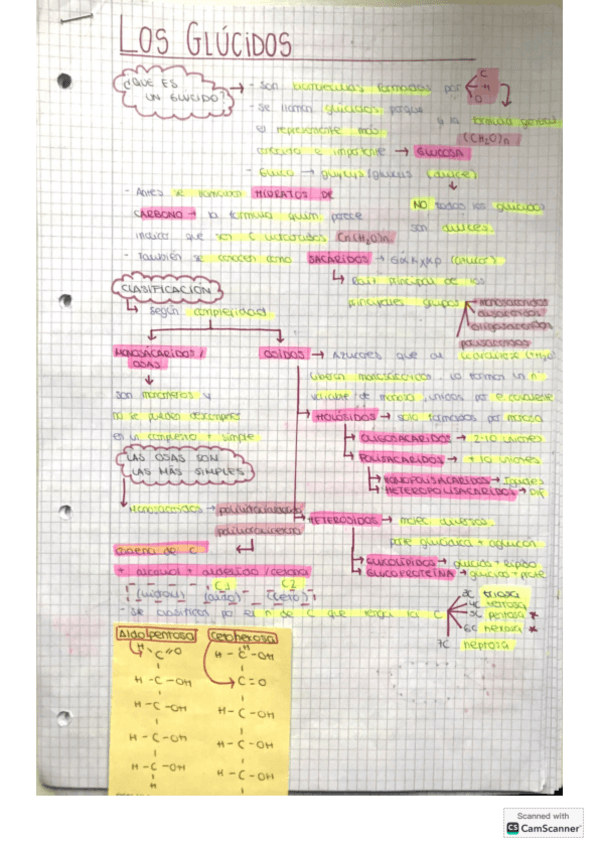 LOS GLÚCIDOS
¿QUÉ ES UN GLÚCIDO?
→ - Son biomoléculas formadas por C H O
- Se llaman glúcidos porque
y la fórmula general
el representante más
(CH2O)n
conocido e importante → GLUCOSA
- Gluco → glucus (dulce)
NO todos los glúcidos
son dulces.
- Antes se llamaban HIDRATOS DE
CARBONO → la fórmula quím. parece
indicar que son C hidratados Cn(H2O)n.
- También se conocen como SACÁRIDOS → (azúcar)
↳ Raíz principal de los
principales grupos
monosacáridos
disacáridos
oligosacáridos
polisacáridos
CLASIFICACIÓN
↳ según complejidad
MONOSACÁRIDOS / OSAS
ÓSIDOS → Azúcares que al
liberan monosacáridos. Lo forman un nº
variable de monosac, unidos por
son monómeros y
no se pueden descomponer
en un complejo + simple
HOLÓSIDOS → solo formados por monosa
OLIGOSACÁRIDOS → 2-10 uniones
POLISACÁRIDOS → +10 uniones
HOMOPOLISACÁRIDOS → Iguales
HETEROPOLISACÁRIDOS → Dif
LAS OSAS SON
LAS MÁS SIMPLES
Monosacáridos →
HETERÓSIDOS → moléc diversas
parte glucídica + aglucón
GLUCOLÍPIDOS → glúcido + lípido
GLUCOPROTEÍNA → glúcido + prote
cadena de C
+ alcohol + aldehído / cetona
C1 C2
(aldo) (ceto)
- Se clasifican por el nº de C que tenga la C
3C triosa
4C tetrosa
5C pentosa *
6C hexosa *
7C heptosa
Aldopentosa
H
C=O
H-C-OH
H-C-OH
H-C-OH
H-C-OH
H
Cetohexosa
H
H-C-OH
C=O
H-C-OH
H-C-OH
H-C-OH
Scanned with
CS CamScanner